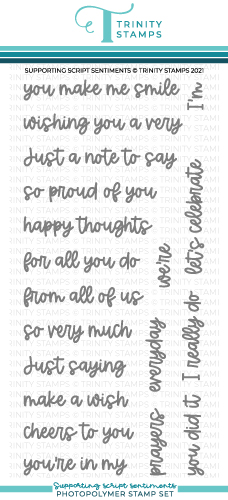 TRINITY
STAMPS
SUPPORTING SCRIPT SENTIMENTS © TRINITY STAMPS 2021
you make me smile
I'm
wishing you a very
just a note to say
so proud of you
let's celebrate
happy thoughts
for all you do
we're
from all of us
so very much
I really do
just saying
everyday
make a wish
you did it
cheers to you
prayers
you're in my
Supporting script sentiments
PHOTOPOLYMER STAMP SET